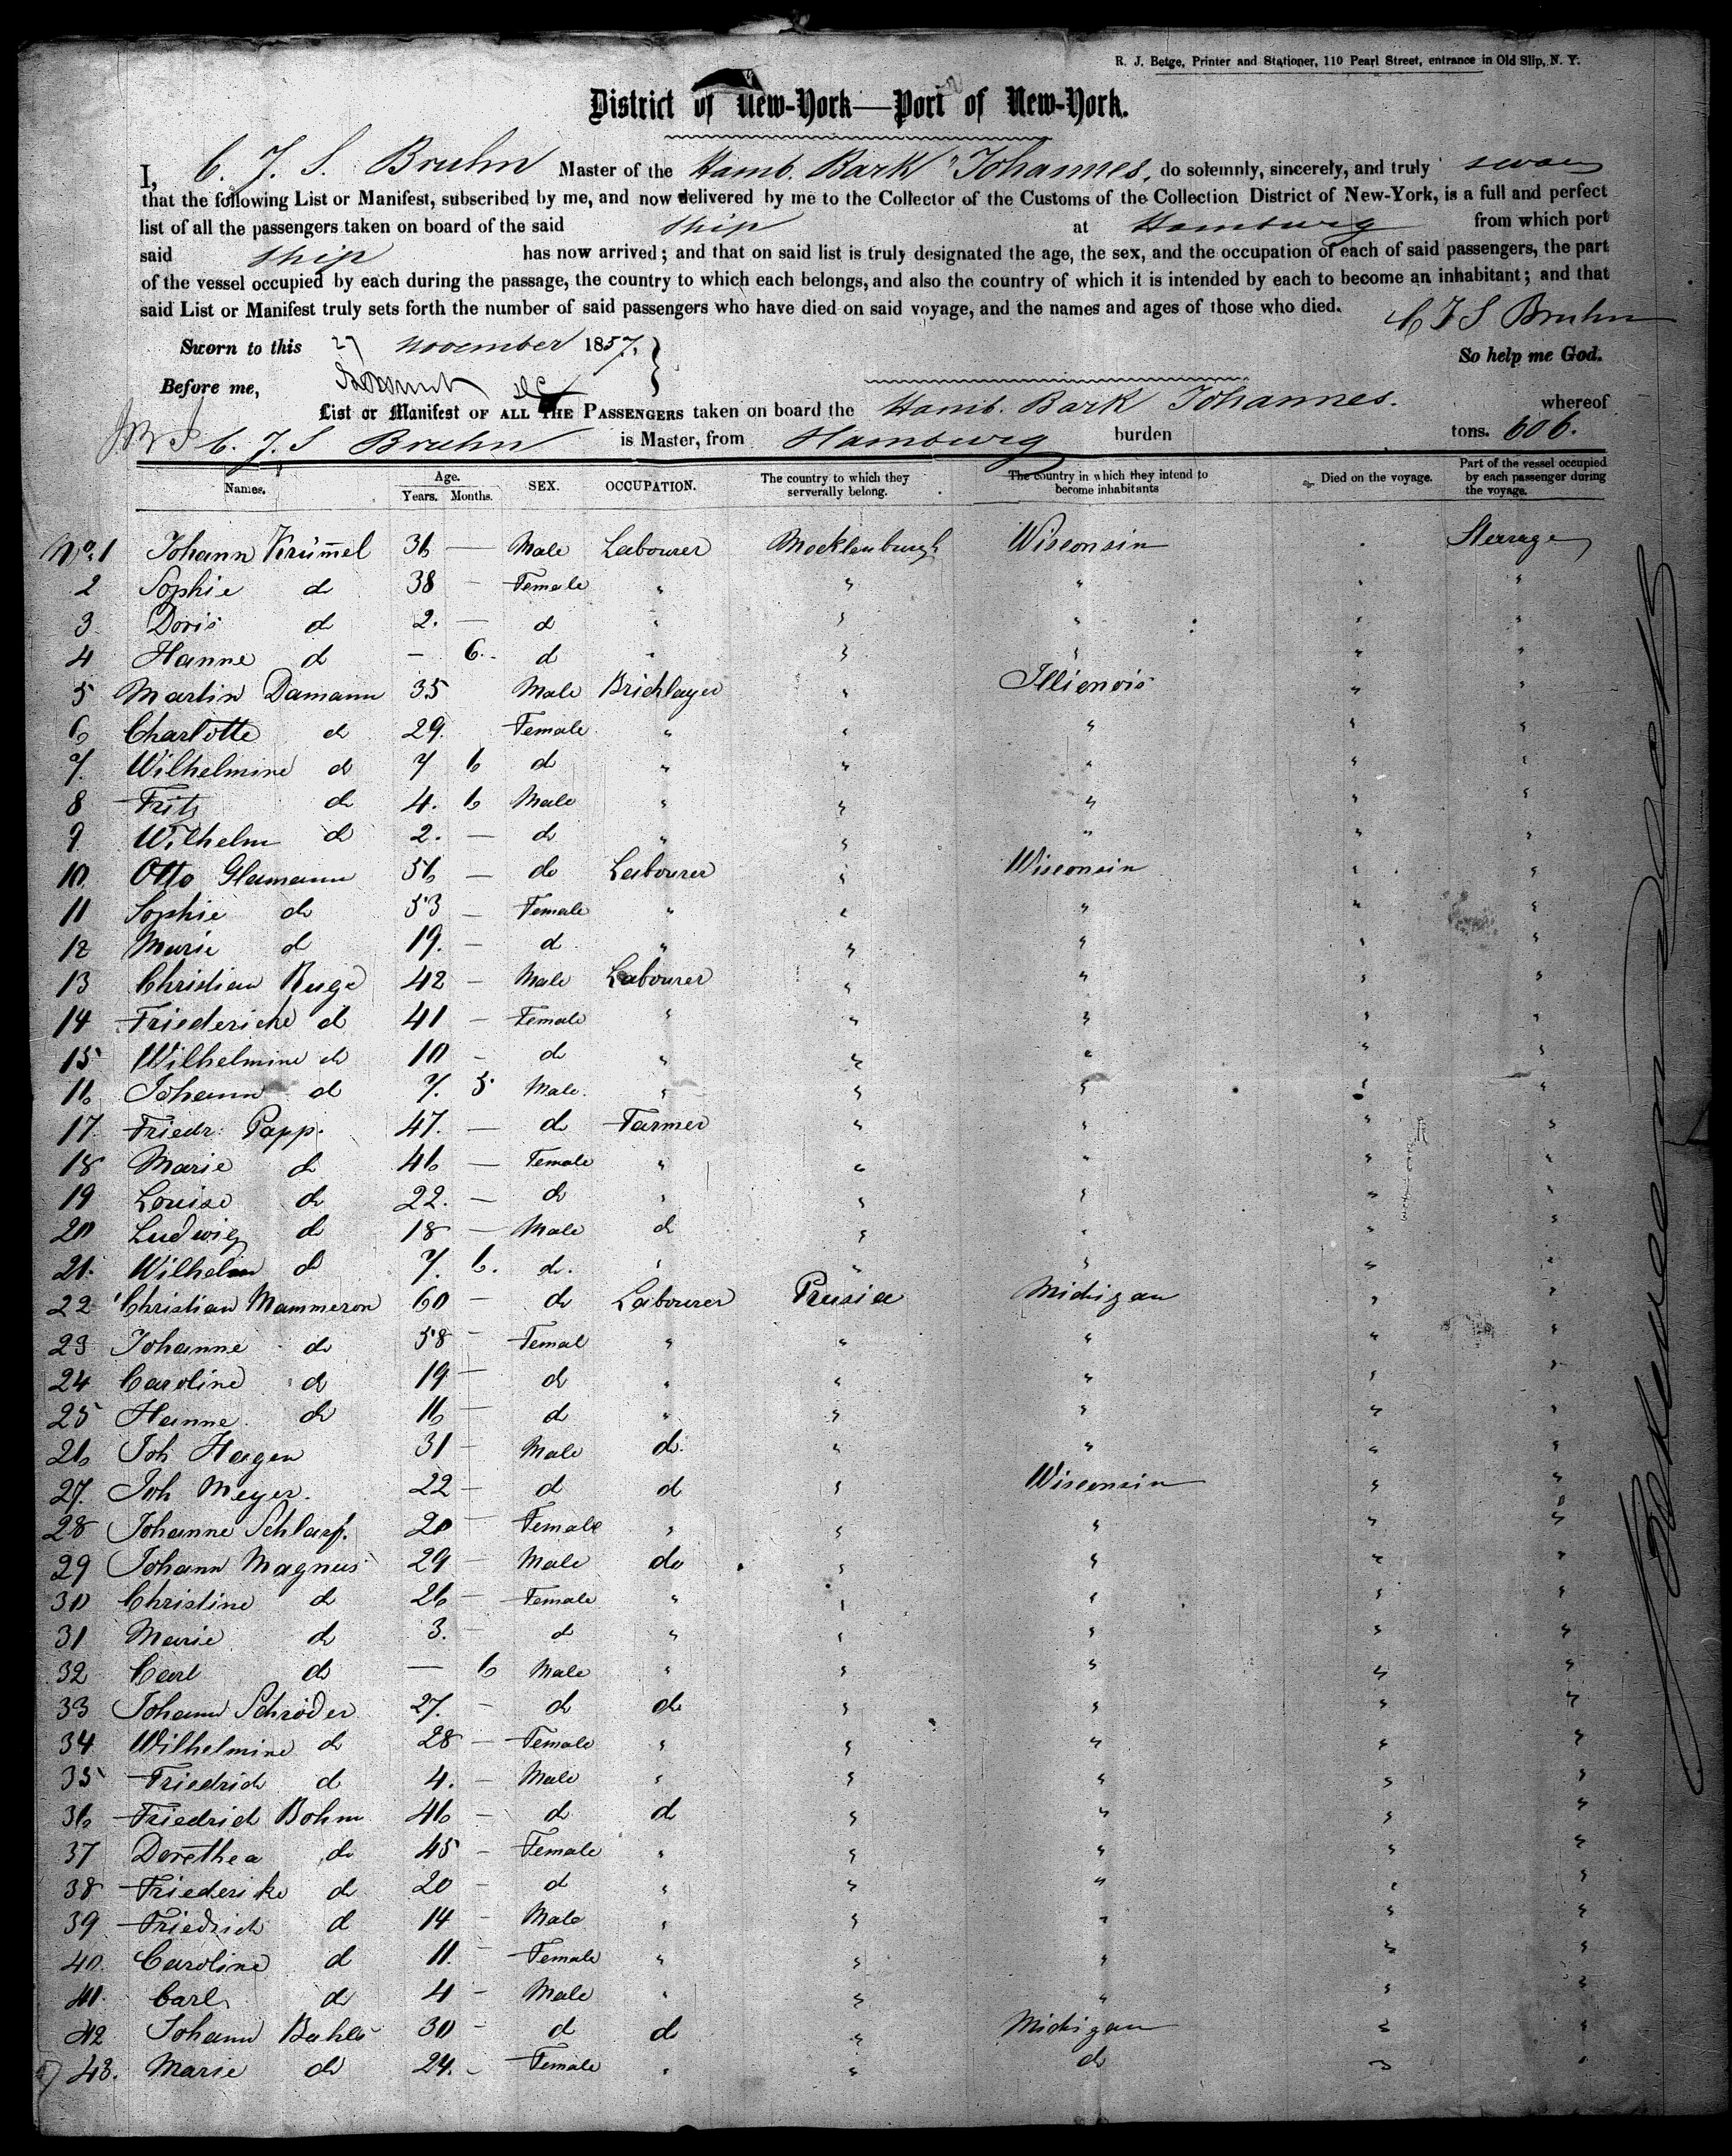 R. J. Betge, Printer and Stationer, 110 Pearl Street, entrance in Old Slip, N. Y.
District of New-York—Port of New-York.
I, C. J. S. Bruhn Master of the Hamb. Bark "Johannes, do solemnly, sincerely, and truly swear
that the following List or Manifest, subscribed by me, and now delivered by me to the Collector of the Customs of the Collection District of New-York, is a full and perfect
list of all the passengers taken on board of the said ship at Hamburg from which port
said ship has now arrived; and that on said list is truly designated the age, the sex, and the occupation of each of said passengers, the part
of the vessel occupied by each during the passage, the country to which each belongs, and also the country of which it is intended by each to become an inhabitant; and that
said List or Manifest truly sets forth the number of said passengers who have died on said voyage, and the names and ages of those who died.
C J S Bruhn
Sworn to this 27 november 1857,
So help me God.
Before me,
List or Manifest OF ALL THE PASSENGERS taken on board the Hamb. Bark Johannes. whereof
C. J. S Bruhn is Master, from Hamburg burden tons. 606.
Names. Age. Years. Months. SEX. OCCUPATION. The country to which they serverally belong. The country in which they intend to become inhabitants Died on the voyage. Part of the vessel occupied by each passenger during the voyage.
No. 1 Johann Krümmel 36 — Male Labourer Mecklenburgh Wisconsin Steerage
2 Sophie do 38 — Female " " " " "
3 Doris do 2. — do " " " " "
4 Hanne do — 6. do " " " " "
5 Martin Damann 35 Male Bricklayer " Illienois " "
6 Charlotte do 29. Female " " " " "
7. Wilhelmine do 7 6 do " " " " "
8 Fritz do 4. 6 Male " " " " "
9 Wilhelm do 2. — do " " " " "
10. Otto Glamann 56 — do Labourer " Wisconsin " "
11 Sophie do 53 — Female " " " " "
12 Marie do 19. — do " " " " "
13 Christian Ruge 42 — Male Labourer " " " "
14 Friedericke do 41 — Female " " " " "
15 Wilhelmine do 10 — do " " " " "
16 Johann do 7. 5 Male. " " " " "
17. Friedr. Papp. 47. — do Farmer " " " "
18 Marie do 46 — Female " " " " "
19 Louise do 22. — do " " " " "
20 Ludwig do 18 — Male do " " " "
21. Wilhelm do 7. 6. do. " " " " "
22 Christian Mammeron 60 — do Labourer Prusia Michigan " "
23 Johanne do 58 — Femal " " " " "
24 Caroline do 19 — do " " " " "
25 Hanne do 16 — do " " " " "
26 Joh Hagen 31 — Male do. " " " "
27. Joh Meyer. 22 — do do " Wisconsin " "
28 Johanne Schlarf. 20 — Female " " " " "
29 Johann Magnus 29 — Male do " " " "
30 Christine do 26 — Female " " " " "
31 Marie do 3. — do " " " " "
32 Carl do — 6 Male " " " " "
33 Johann Schröder 27. — do do " " " "
34 Wilhelmine do 28 — Female " " " " "
35 Friedrich do 4. — Male " " " " "
36 Friedrich Bohm 46 — do do " " " "
37 Dorethea do 45 — Female " " " " "
38 Friederike do 20 — do " " " " "
39 Friedrich do 14 — Male " " " " "
40. Caroline do 11. — Female " " " " "
41. Carl do 4 — Male " " " " "
42 Johann Bahls 30 — do do " Michigan " "
43. Marie do 24. — Female " " do " "